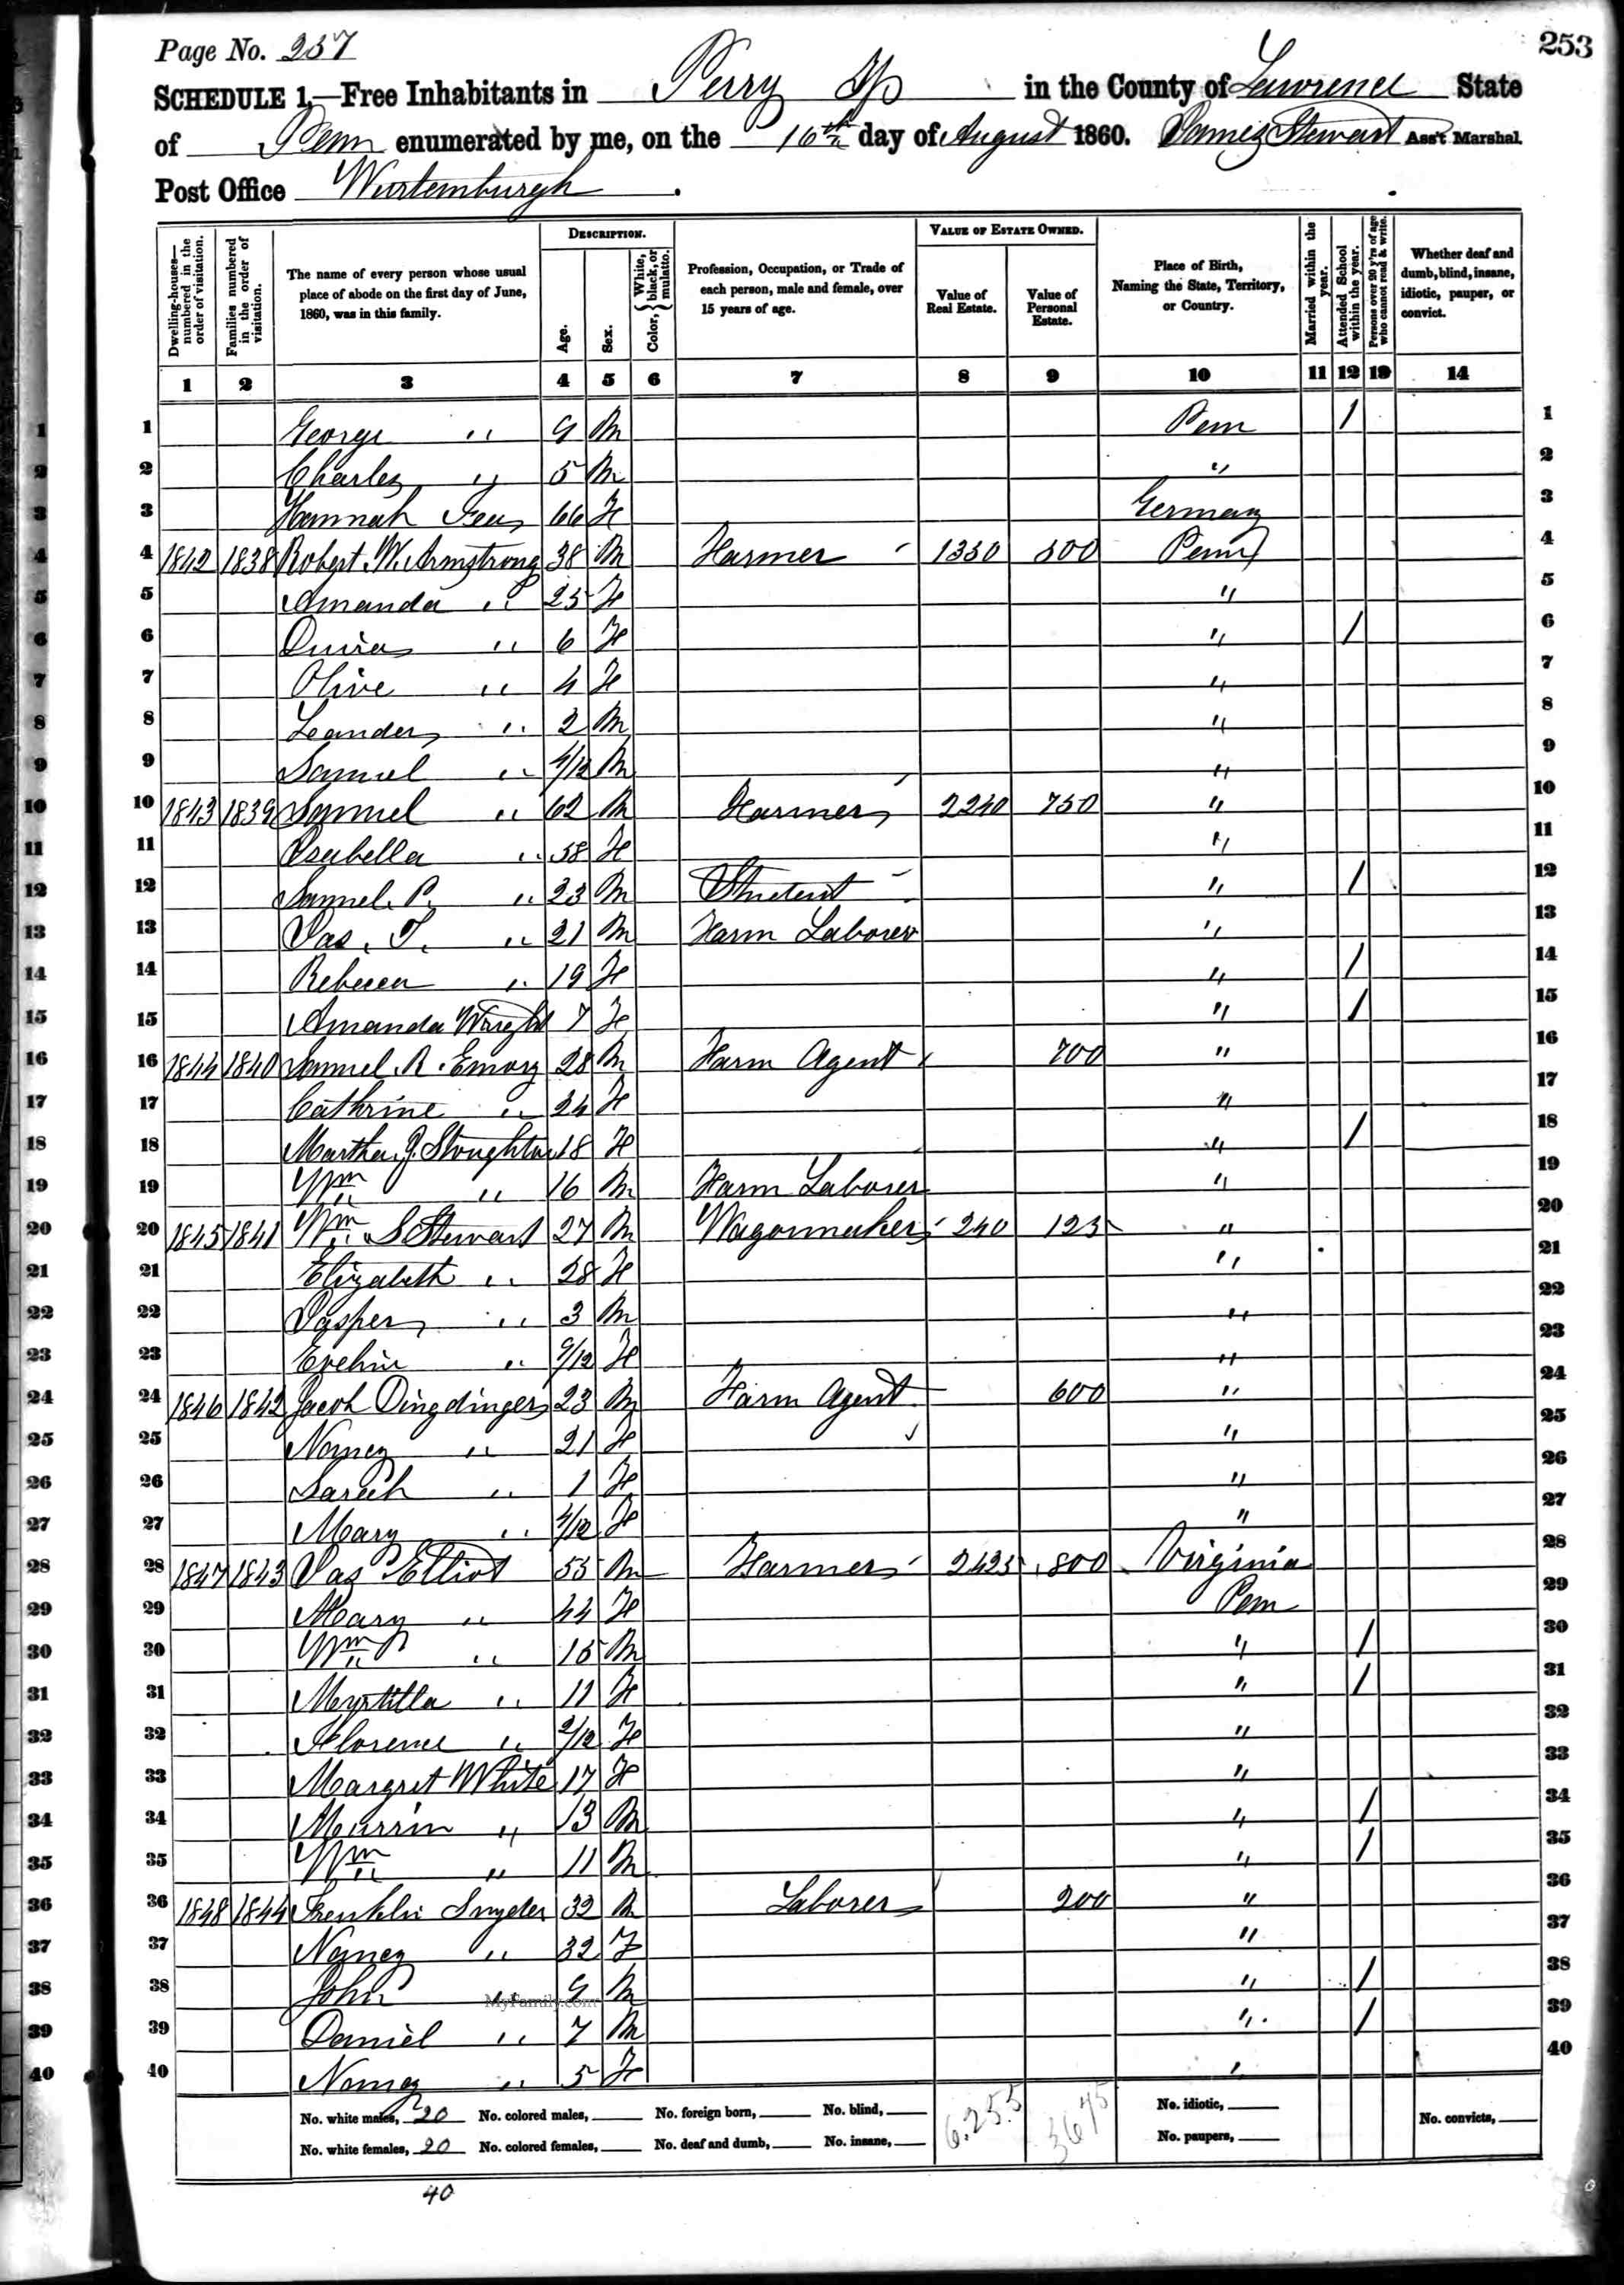 Page No. 257
253
SCHEDULE 1.—Free Inhabitants in Perry Tp in the County of Lawrence State
of Penn enumerated by me, on the 16th day of August 1860. James Stewart Ass't Marshal.
Post Office Wurtemburgh.
Dwelling-houses—numbered in the order of visitation.
Families numbered in the order of visitation.
The name of every person whose usual place of abode on the first day of June, 1860, was in this family.
DESCRIPTION.
Age.
Sex.
Color, { White, black, or mulatto.
Profession, Occupation, or Trade of each person, male and female, over 15 years of age.
VALUE OF ESTATE OWNED.
Value of Real Estate.
Value of Personal Estate.
Place of Birth, Naming the State, Territory, or Country.
Married within the year.
Attended School within the year.
Persons over 20 y'rs of age who cannot read & write.
Whether deaf and dumb, blind, insane, idiotic, pauper, or convict.
1 2 3 4 5 6 7 8 9 10 11 12 13 14
1 George " 9 M Penn / 1
2 Charles " 5 M " 2
3 Hannah 66 F Germany 3
4 1842 1838 Robert W. Armstrong 38 M Farmer 1330 500 Penn 4
5 Amanda " 25 F " 5
6 " 6 F " / 6
7 Olive " 4 F " 7
8 Leander " 2 M " 8
9 Samuel " 4/12 M " 9
10 1843 1839 Samuel " 62 M Farmer 2240 750 " 10
11 Isabella " 58 F " 11
12 Samuel P. " 23 M Student " / 12
13 Jas. T. " 21 M Farm Laborer " 13
14 Rebecca " 19 F " / 14
15 Amanda Wright 7 F " / 15
16 1844 1840 Samuel R. Emory 28 M Farm Agent 700 " 16
17 Cathrine " 24 F " 17
18 Martha J. Stoughton 18 F " / 18
19 Wm " 16 M Farm Laborer " 19
20 1845 1841 Wm S Stewart 27 M Wagonmaker 240 125 " 20
21 Elizabeth " 28 F " 21
22 Jasper " 3 M " 22
23 Eveline " 9/12 F " 23
24 1846 1842 Jacob Dingdinger 23 M Farm Agent 600 " 24
25 Nancy " 21 F " 25
26 Sarah " 1 F " 26
27 Mary " 4/12 F " 27
28 1847 1843 Jas Elliot 55 M Farmer 2425 800 Virginia 28
29 Mary " 44 F Penn 29
30 Wm " 15 M " / 30
31 Myrtilla " 11 F " / 31
32 Florence " 2/12 F " 32
33 Margret White 17 F " 33
34 " 13 M " / 34
35 Wm " 11 M " / 35
36 1848 1844 Frenklin Snyder 32 M Laborer 200 " 36
37 Nancy " 32 F " 37
38 John " 9 M " / 38
39 Daniel " 7 M " / 39
40 Nancy " 5 F " 40
MyFamily.com
No. white males, 20 No. colored males, No. foreign born, No. blind, 6.255 3675 No. idiotic,
No. white females, 20 No. colored females, No. deaf and dumb, No. insane, No. paupers, No. convicts,
40